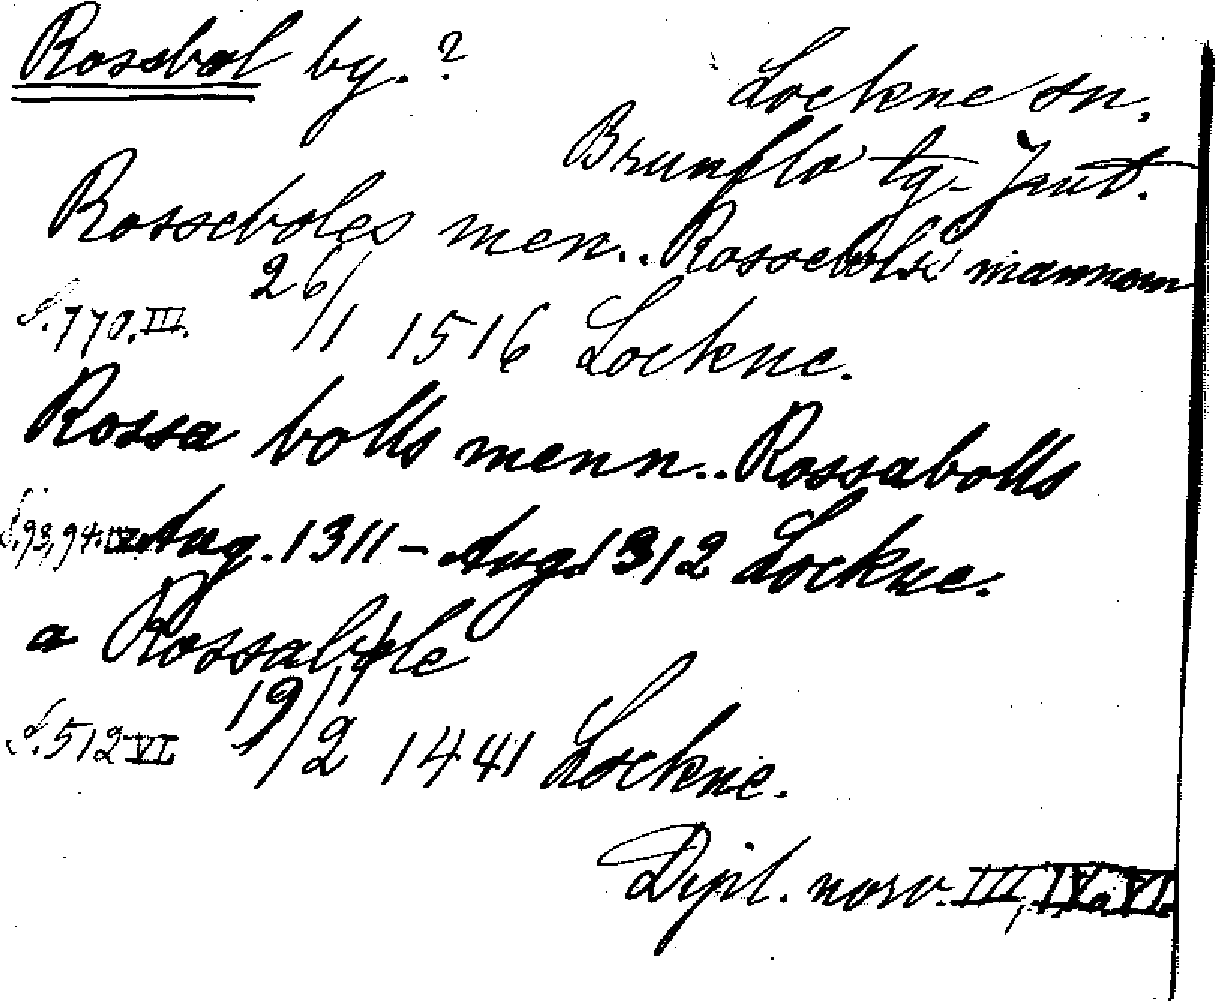 Rossbol by. ?
Lockne sn.
Brunflo tg. Jmt.
Rosseboles men.. Rossebols mannom
S. 770. III. 26/1 1516 Lockne.
Rossa bolls menn.. Rossabolls
S. 93, 94. IV. Aug. 1311 - Aug. 1312 Lockne.
a Rossabole
S. 512 VI. 19/2 1441 Lockne.
Dipl. norv. III, IV o VI.